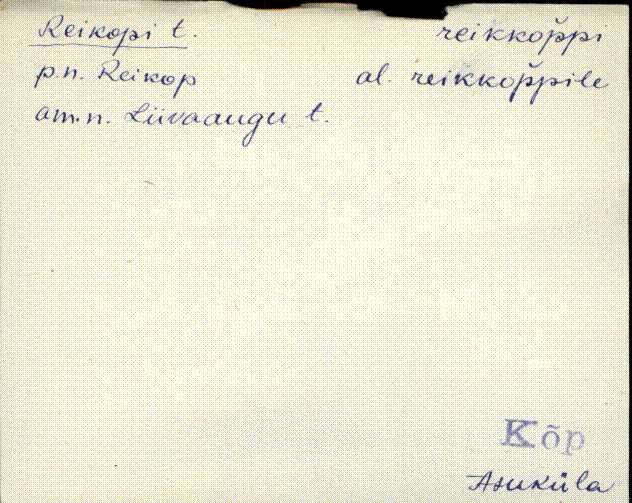 Reikopi t. reikkop̆pi
p.n. Reikop al. reikkop̆pile
am.n. Liivaaugu t.
Kõp
Asuküla